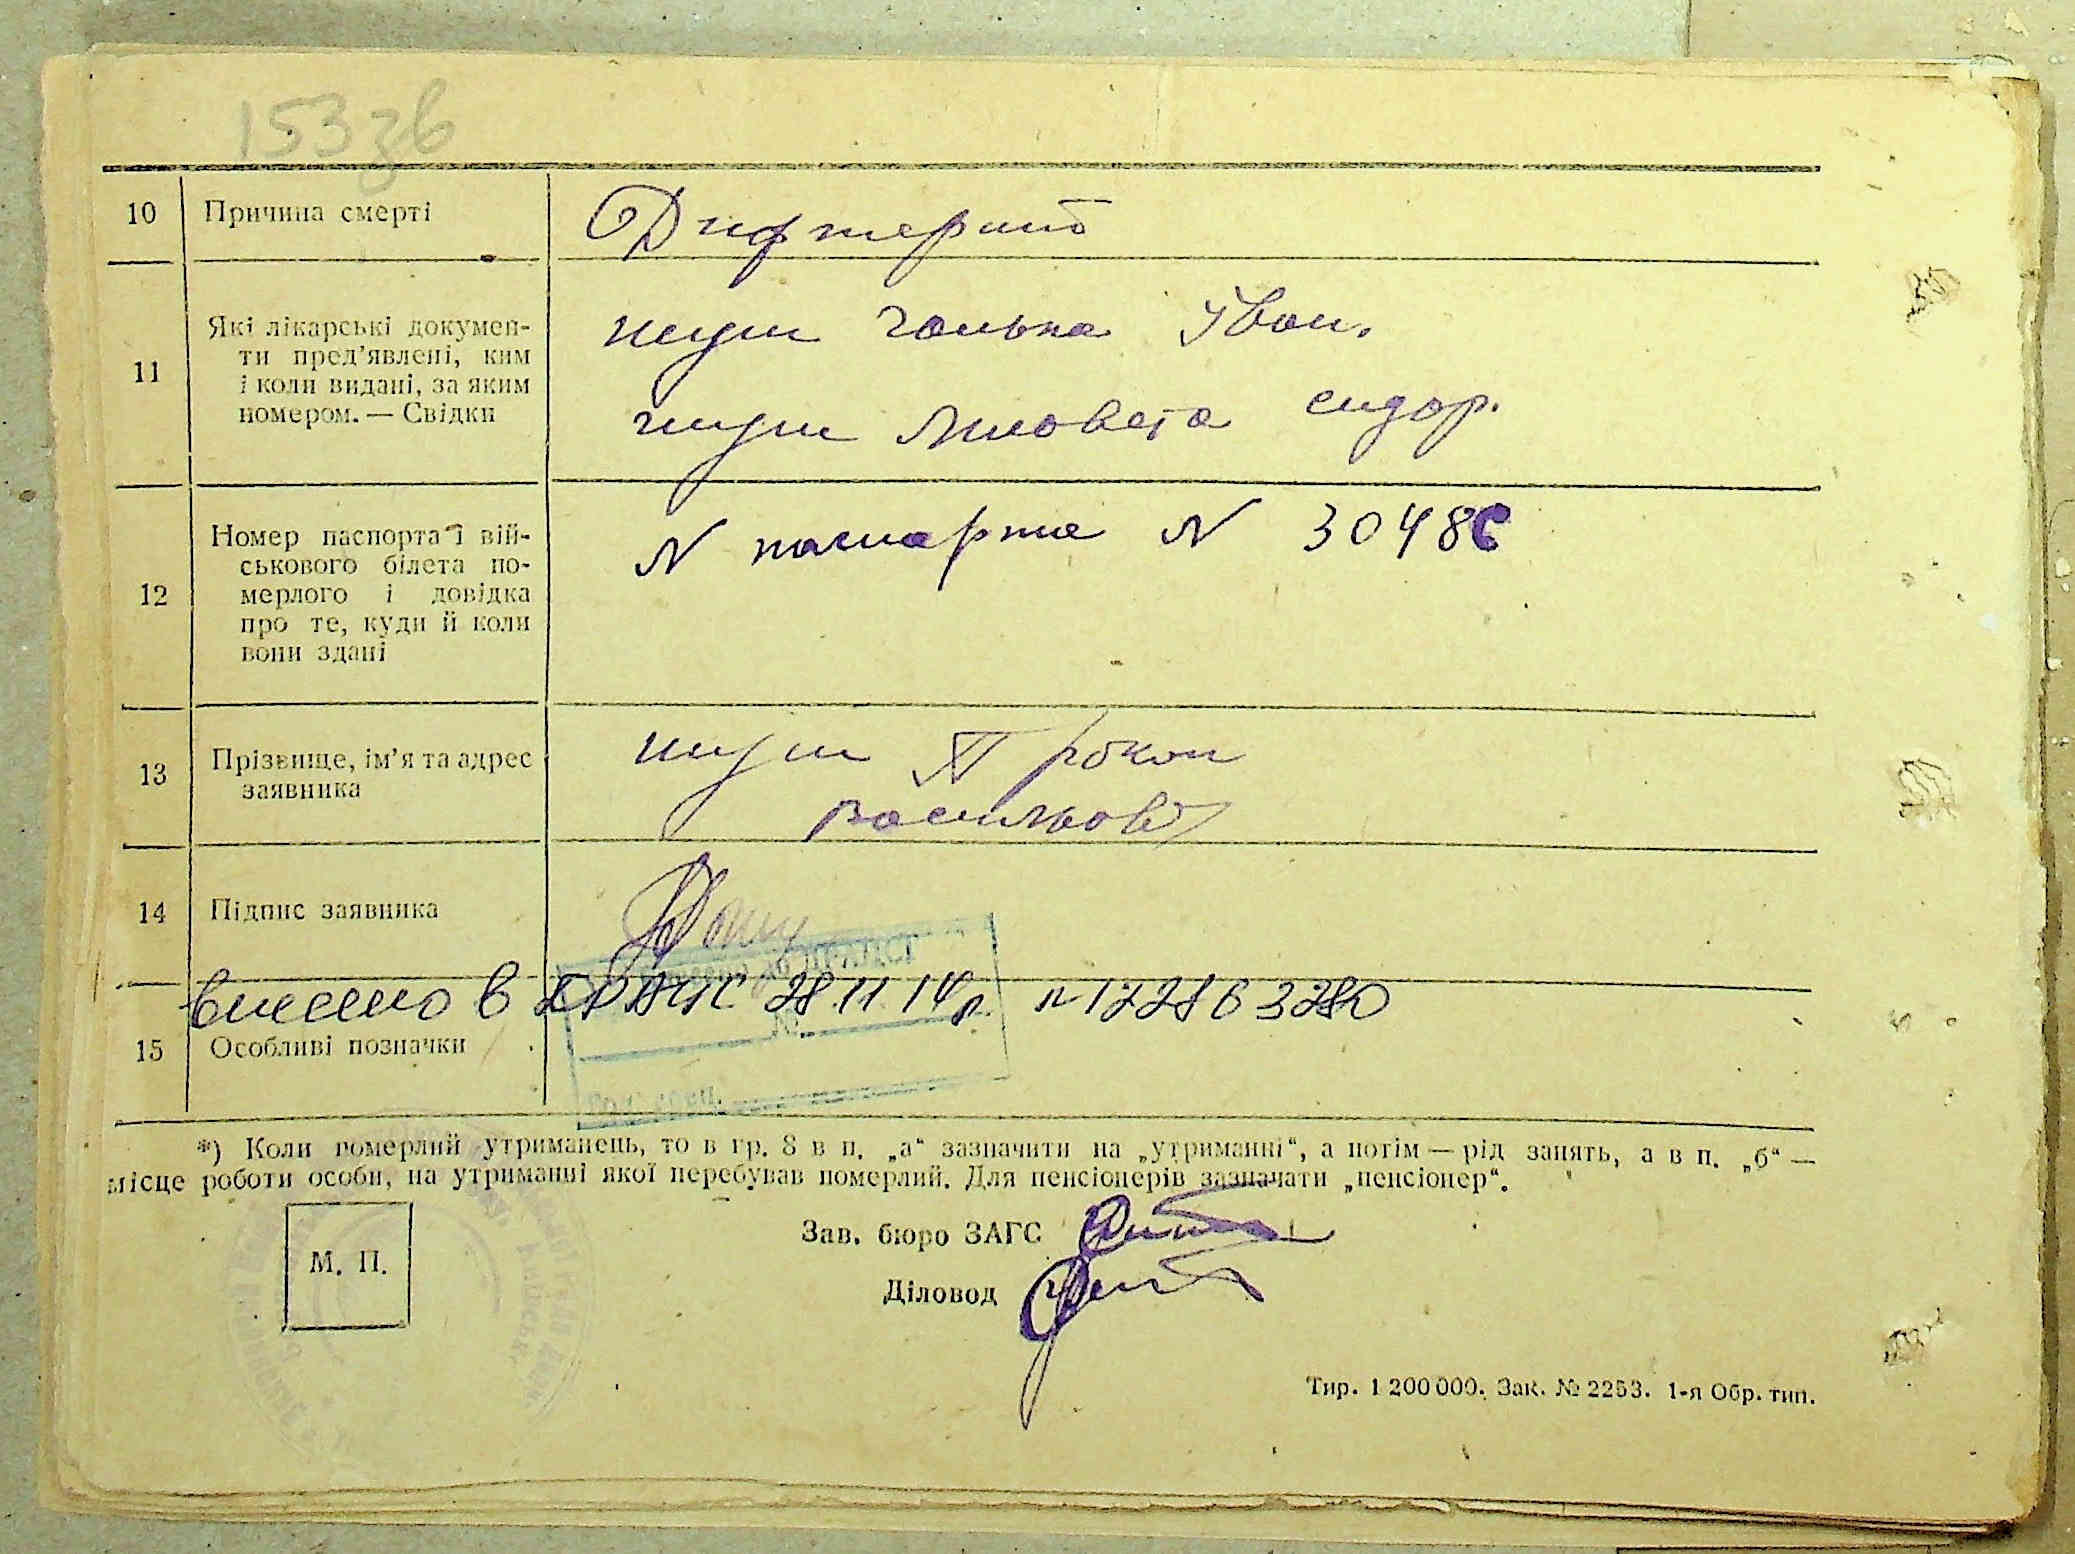 153 зв
10 Причина смерті Дифтерит
11 Які лікарські докумен-
ти пред'явлені, ким
і коли видані, за яким
номером. — Свідки
Іван.
сидор.
12 Номер паспорта і вій-
ськового білета по-
мерлого і довідка
про те, куди й коли
вони здані
N паспорта N 3048
13 Прізвище, ім'я та адрес
заявника
Прокоп
Васильов
14 Підпис заявника
внесено в ДРАЦС 28 11 14р. n 122863280
№
15 Особливі позначки
*) Коли померлий утриманець, то в гр. 8 в п. „а“ зазначити на „утриманні“, а потім — рід занять, а в п. „б“ —
місце роботи особи, на утриманні якої перебував померлий. Для пенсіонерів зазначати „пенсіонер“.
М. П.
Зав. бюро ЗАГС
Діловод
Тир. 1 200 000. Зак. № 2253. 1-я Обр. тип.